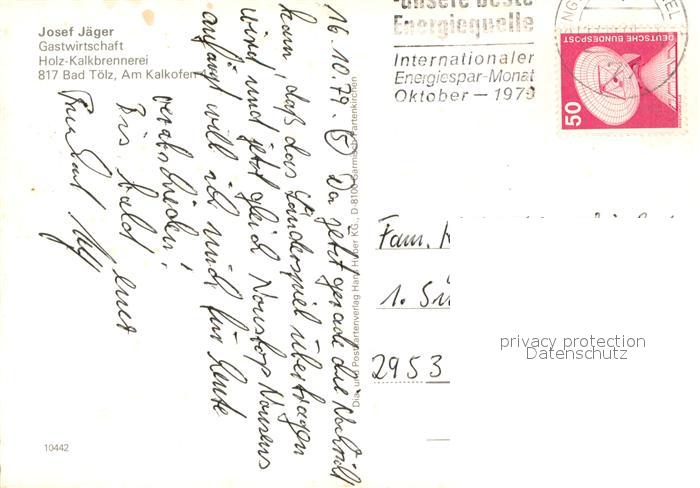 Josef Jäger
Gastwirtschaft
Holz-Kalkbrennerei
817 Bad Tölz, Am Kalkofen
unsere beste
Energiequelle
Internationaler
Energiespar-Monat
Oktober — 1979
DEUTSCHE BUNDESPOST
50
16.10.79. (5) Da jetzt gerade die Nachricht
kam, daß das Länderspiel übertragen
wird und jetzt gleich Nonstop Nonsens
anfängt will ich mich für heute
verabschieden!
Bis bald euer
Dia- und Postkartenverlag Hans Huber KG., D-8100 Garmisch-Partenkirchen
Fam. K
1. Sü
2953
privacy protection
Datenschutz
10442